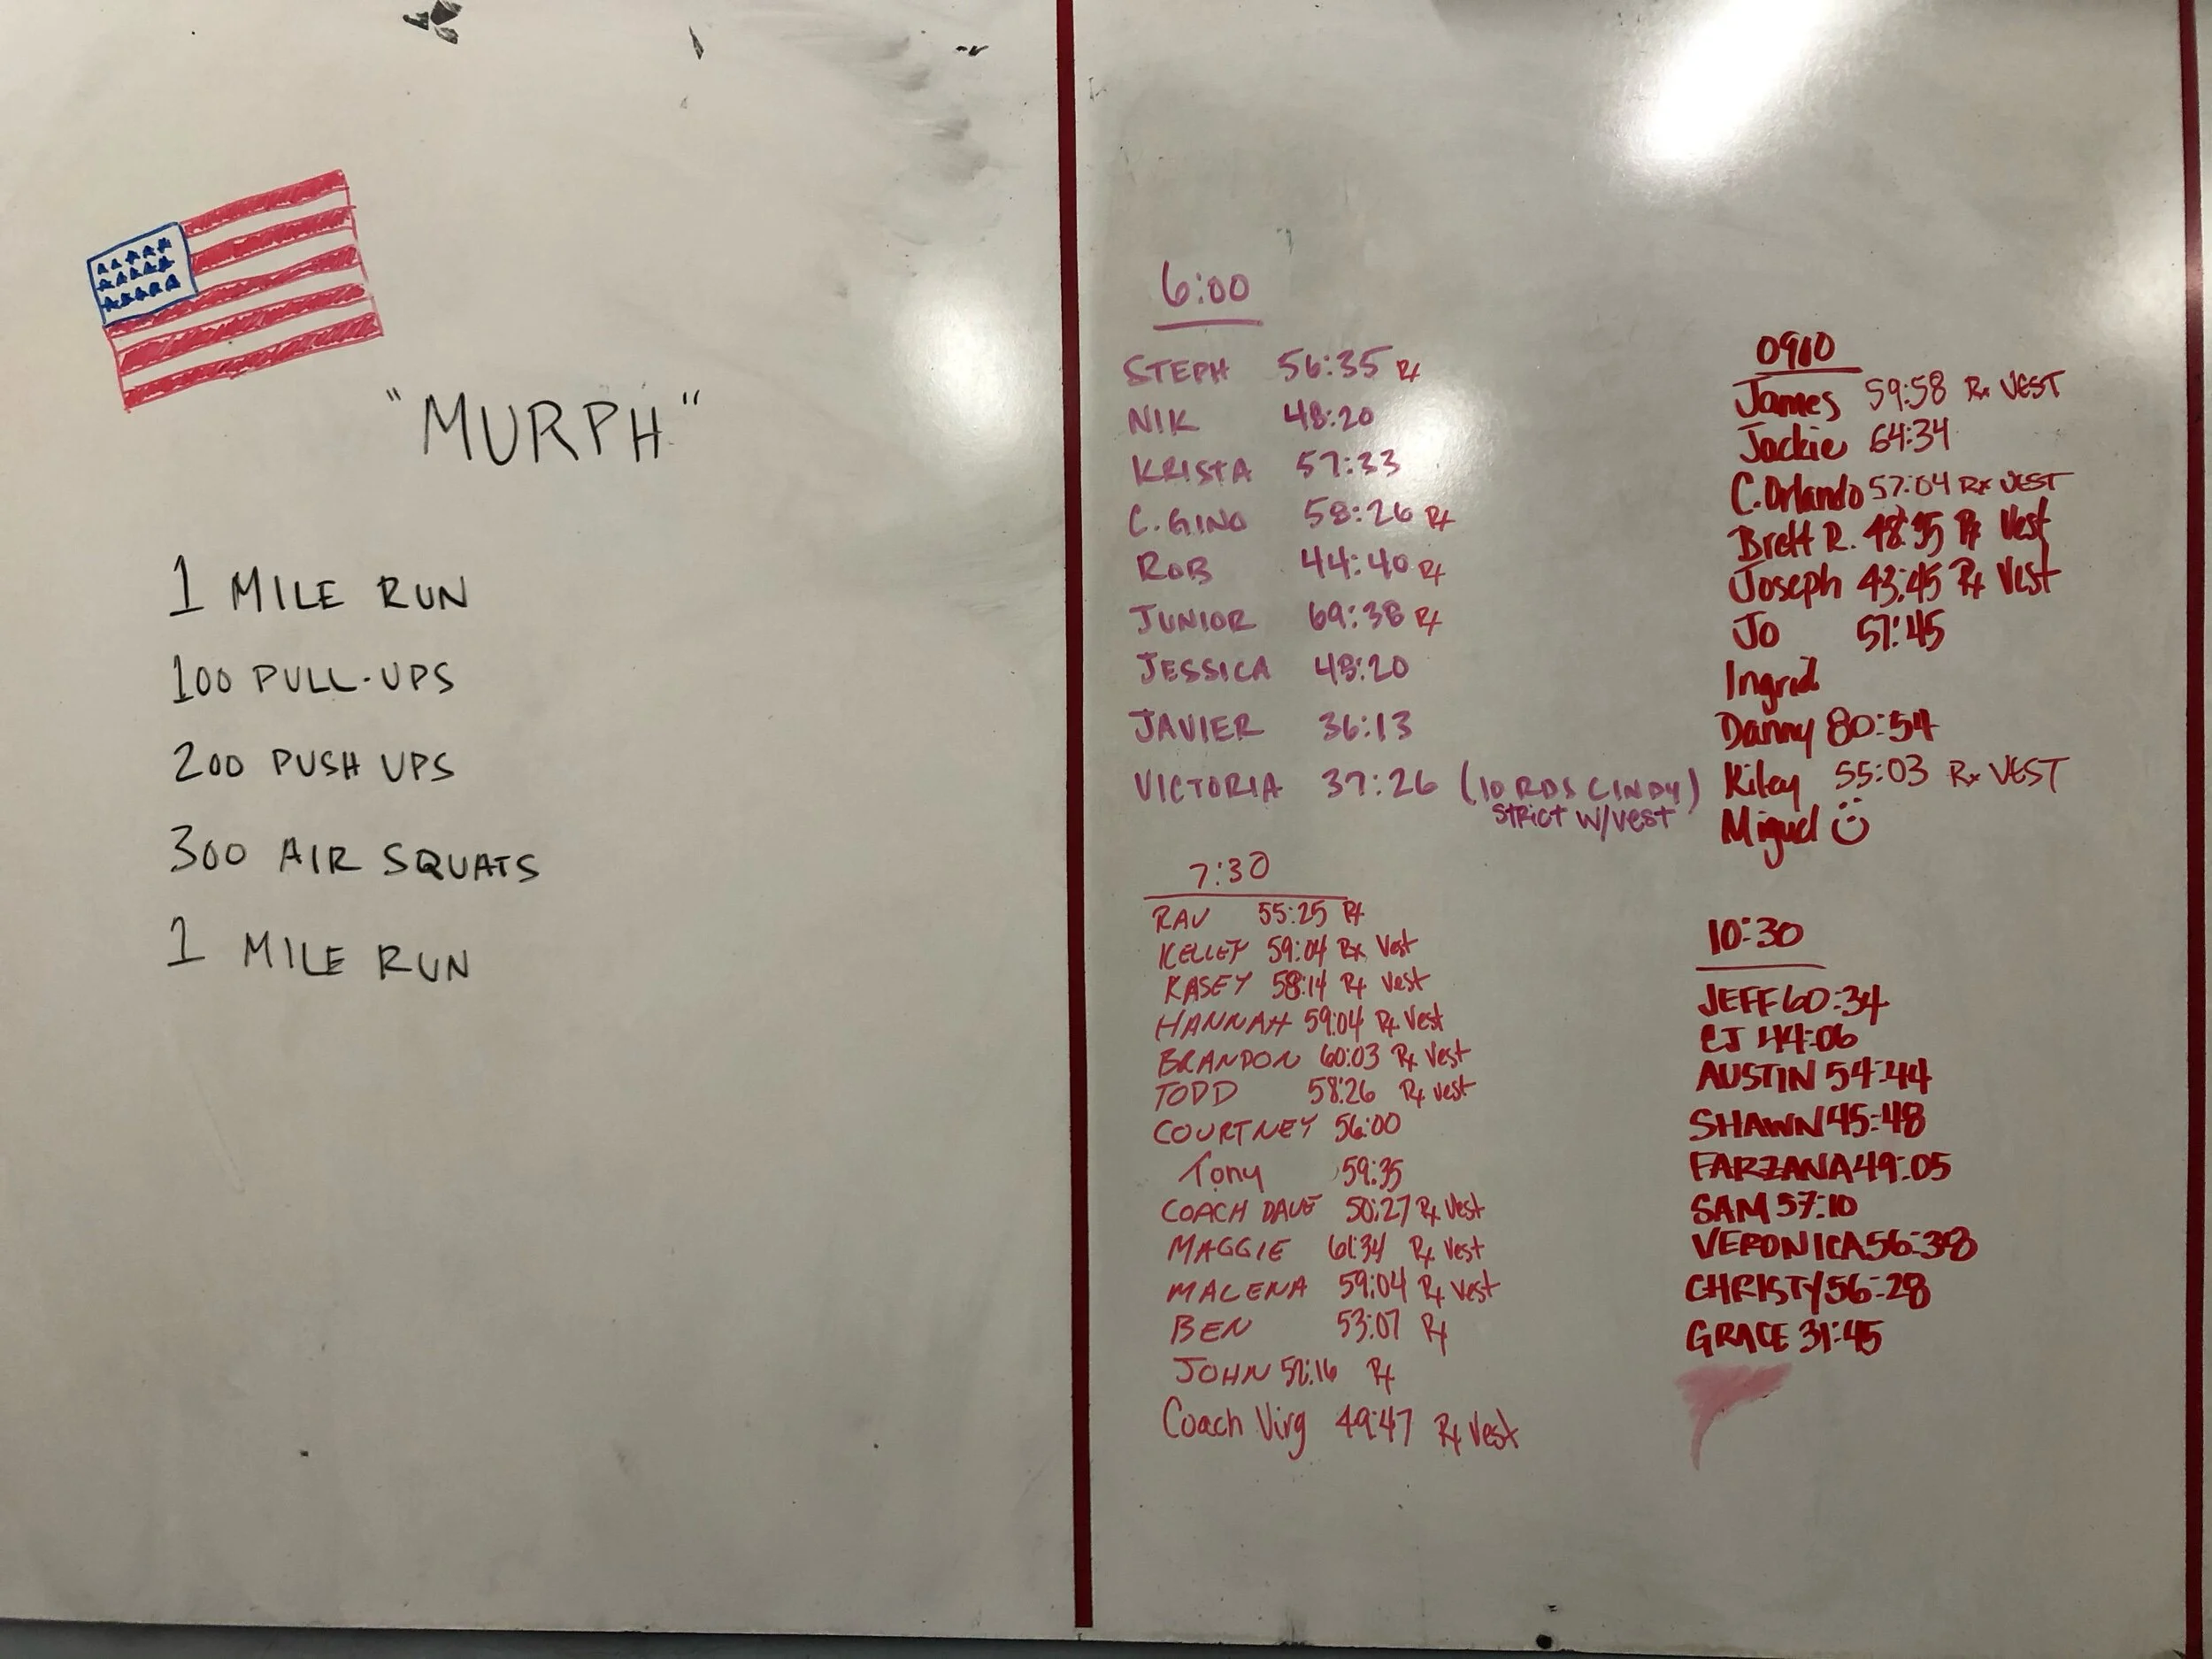 "MURPH"
1 MILE RUN
100 PULL-UPS
200 PUSH UPS
300 AIR SQUATS
1 MILE RUN
6:00
STEPH 56:35 Rx
NIK 48:20
KRISTA 57:33
C.GINO 58:26 Rx
ROB 44:40 Rx
JUNIOR 69:38 Rx
JESSICA 48:20
JAVIER 36:13
VICTORIA 37:26 (10 RDS CINDY)
STRICT W/VEST
7:30
RAV 55:25 Rx
KELLEY 59:04 Rx Vest
KASEY 58:14 Rx Vest
HANNAH 59:04 Rx Vest
BRANDON 60:03 Rx Vest
TODD 58:26 Rx Vest
COURTNEY 56:00
Tony 59:35
COACH DAVE 50:27 Rx Vest
MAGGIE 61:34 Rx Vest
MALENA 59:04 Rx Vest
BEN 53:07 Rx
JOHN 52:16 Rx
Coach Virg 49:47 Rx Vest
0910
James 59:58 Rx VEST
Jackie 64:34
C.Orlando 57:04 Rx VEST
Brett R. 48:35 Rx Vest
Joseph 43:45 Rx Vest
Jo 57:45
Ingrid
Danny 80:54
Kiley 55:03 Rx VEST
Miguel
10:30
JEFF 60:34
CJ 44:06
AUSTIN 54:44
SHAWN 45:48
FARZANA 49:05
SAM 57:10
VERONICA 56:38
CHRISTY 56:28
GRACE 31:45